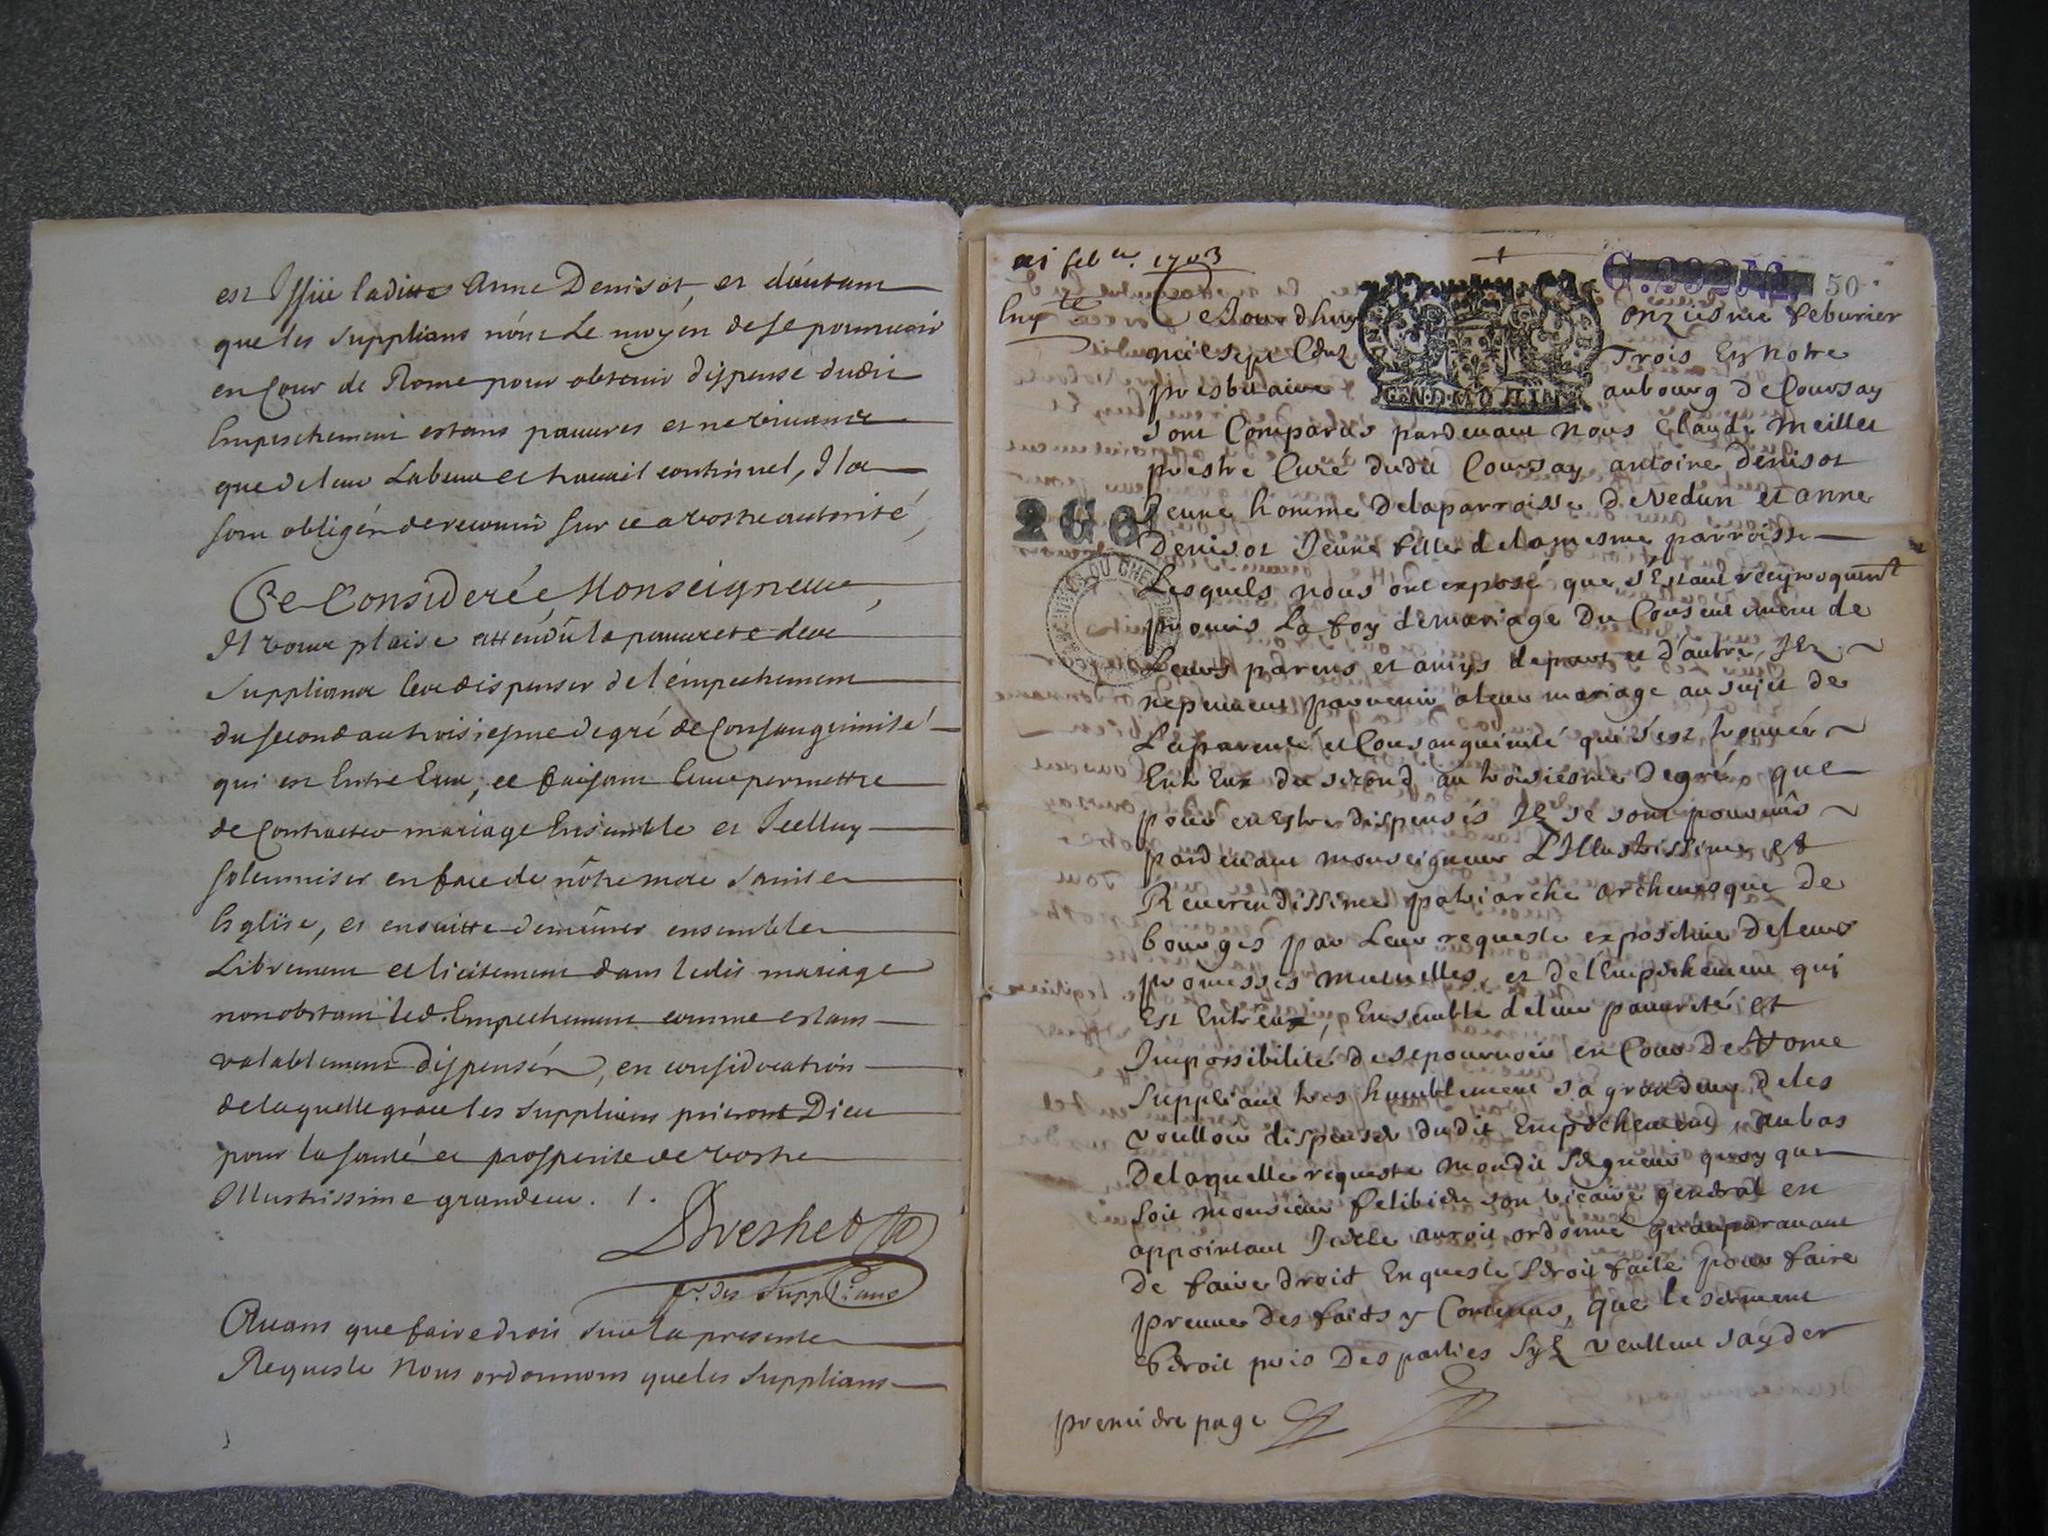 est Issüe laditte Anne Denisot, et d'autant
que les supplians n'ont Le moÿen de se pourvoir
en Cour de Rome pour obtenir dispense dudit
Empeschement estans pauvres et ne vivants
que de leur Labeur et travail continuel, Ilz
sont obligéz de recourir sur ce a vostre autorité,
Ce Considerée Monseigneur,
Il vous plaise attendû la pauvreté des
supplians leur dispenser de l'émpechement
du second au troisiesme degré de Consanguinité
qui est Entre Eux, ce faisant leur permettre
de Contracter mariage Ensemble et Icelluy
solemniser en face de nôtre mere sainte
Eglise, et ensuitte demeurer ensemble
Librement et licitement dans ledit mariage
nonobstant led. Empechement comme estans
valablement dispenséz, en consideration
de laquelle grace les supplians prieront Dieu
pour la santé et prosperité de vostre
Illustrissime grandeur. / .
pr. des Supplians
Avant que faire droit sur la presente
Requeste Nous ordonnons que les supplians
xi feb er. 1703
G. 292 A2 50
Ce Jourdhuy onziesme feburier
mil sept Centz Trois En notre
presbitaire au bourg de Coursay
GND MOULIN
sont Comparus pardevant nous Claude Meillet
prestre Curé dudit Coursay antoine Denisot
Jeune homme de la parroisse de Vedun et anne
2G8
Denisot Jeune fille de la mesme parroisse
Lesquels nous ont exposé que s'Estant reciproquemt
promis La foy de mariage Du Consentement de
Leurs parens et amys de part et d'autre, Ilz
ne peuvent parvenir a leur mariage au sujet de
La parenté et Consanguinité qui s'est trouvée
Entr Eux du second au troisiesme degré, que
pour en Estre dispensés Ilz se sont pourvûs
pardevant monseigneur L'Illustrissime et
Reverendissime patriarche archevesque de
bourges par Leur requeste expositive de leurs
promesses mutuelles, et de l'Empechement qui
Est Entr'eux, Ensemble de leur pauvreté et
Impossibilité de se pourvoir en Cour de Rome
suppliant tres humblement sa grandeur de les
voulloir dispenser dudit Empechement, au bas
de laquelle requeste mondit seigneur quoy que
soit monsieur felibien son vicaire general en
appointant Icelle auroit ordonné qu'auparavant
de faire droit Enqueste seroit faite pour faire
preuve des faits y Contenus, que le serment
seroit pris des parties s'ylz veullent s'ayder
premiere page